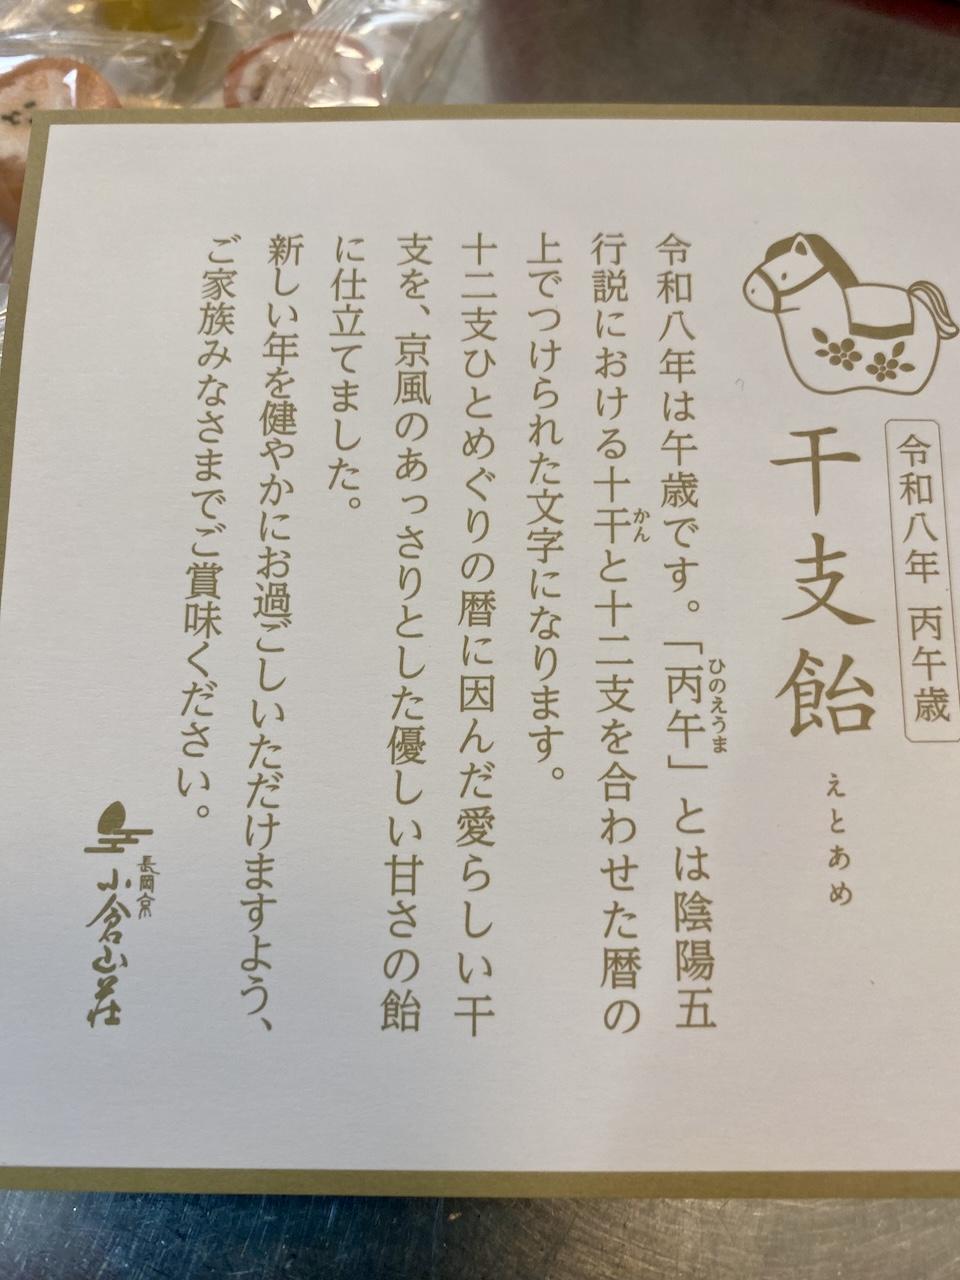 令和八年 丙午歳
干支飴 えとあめ
令和八年は午歳です。「丙午」とは陰陽五
ひのえうま
行説における十干と十二支を合わせた暦の
かん
上でつけられた文字になります。
十二支ひとめぐりの暦に因んだ愛らしい干
支を、京風のあっさりとした優しい甘さの飴
に仕立てました。
新しい年を健やかにお過ごしいただけますよう、
ご家族みなさまでご賞味ください。
長岡京
小倉山荘